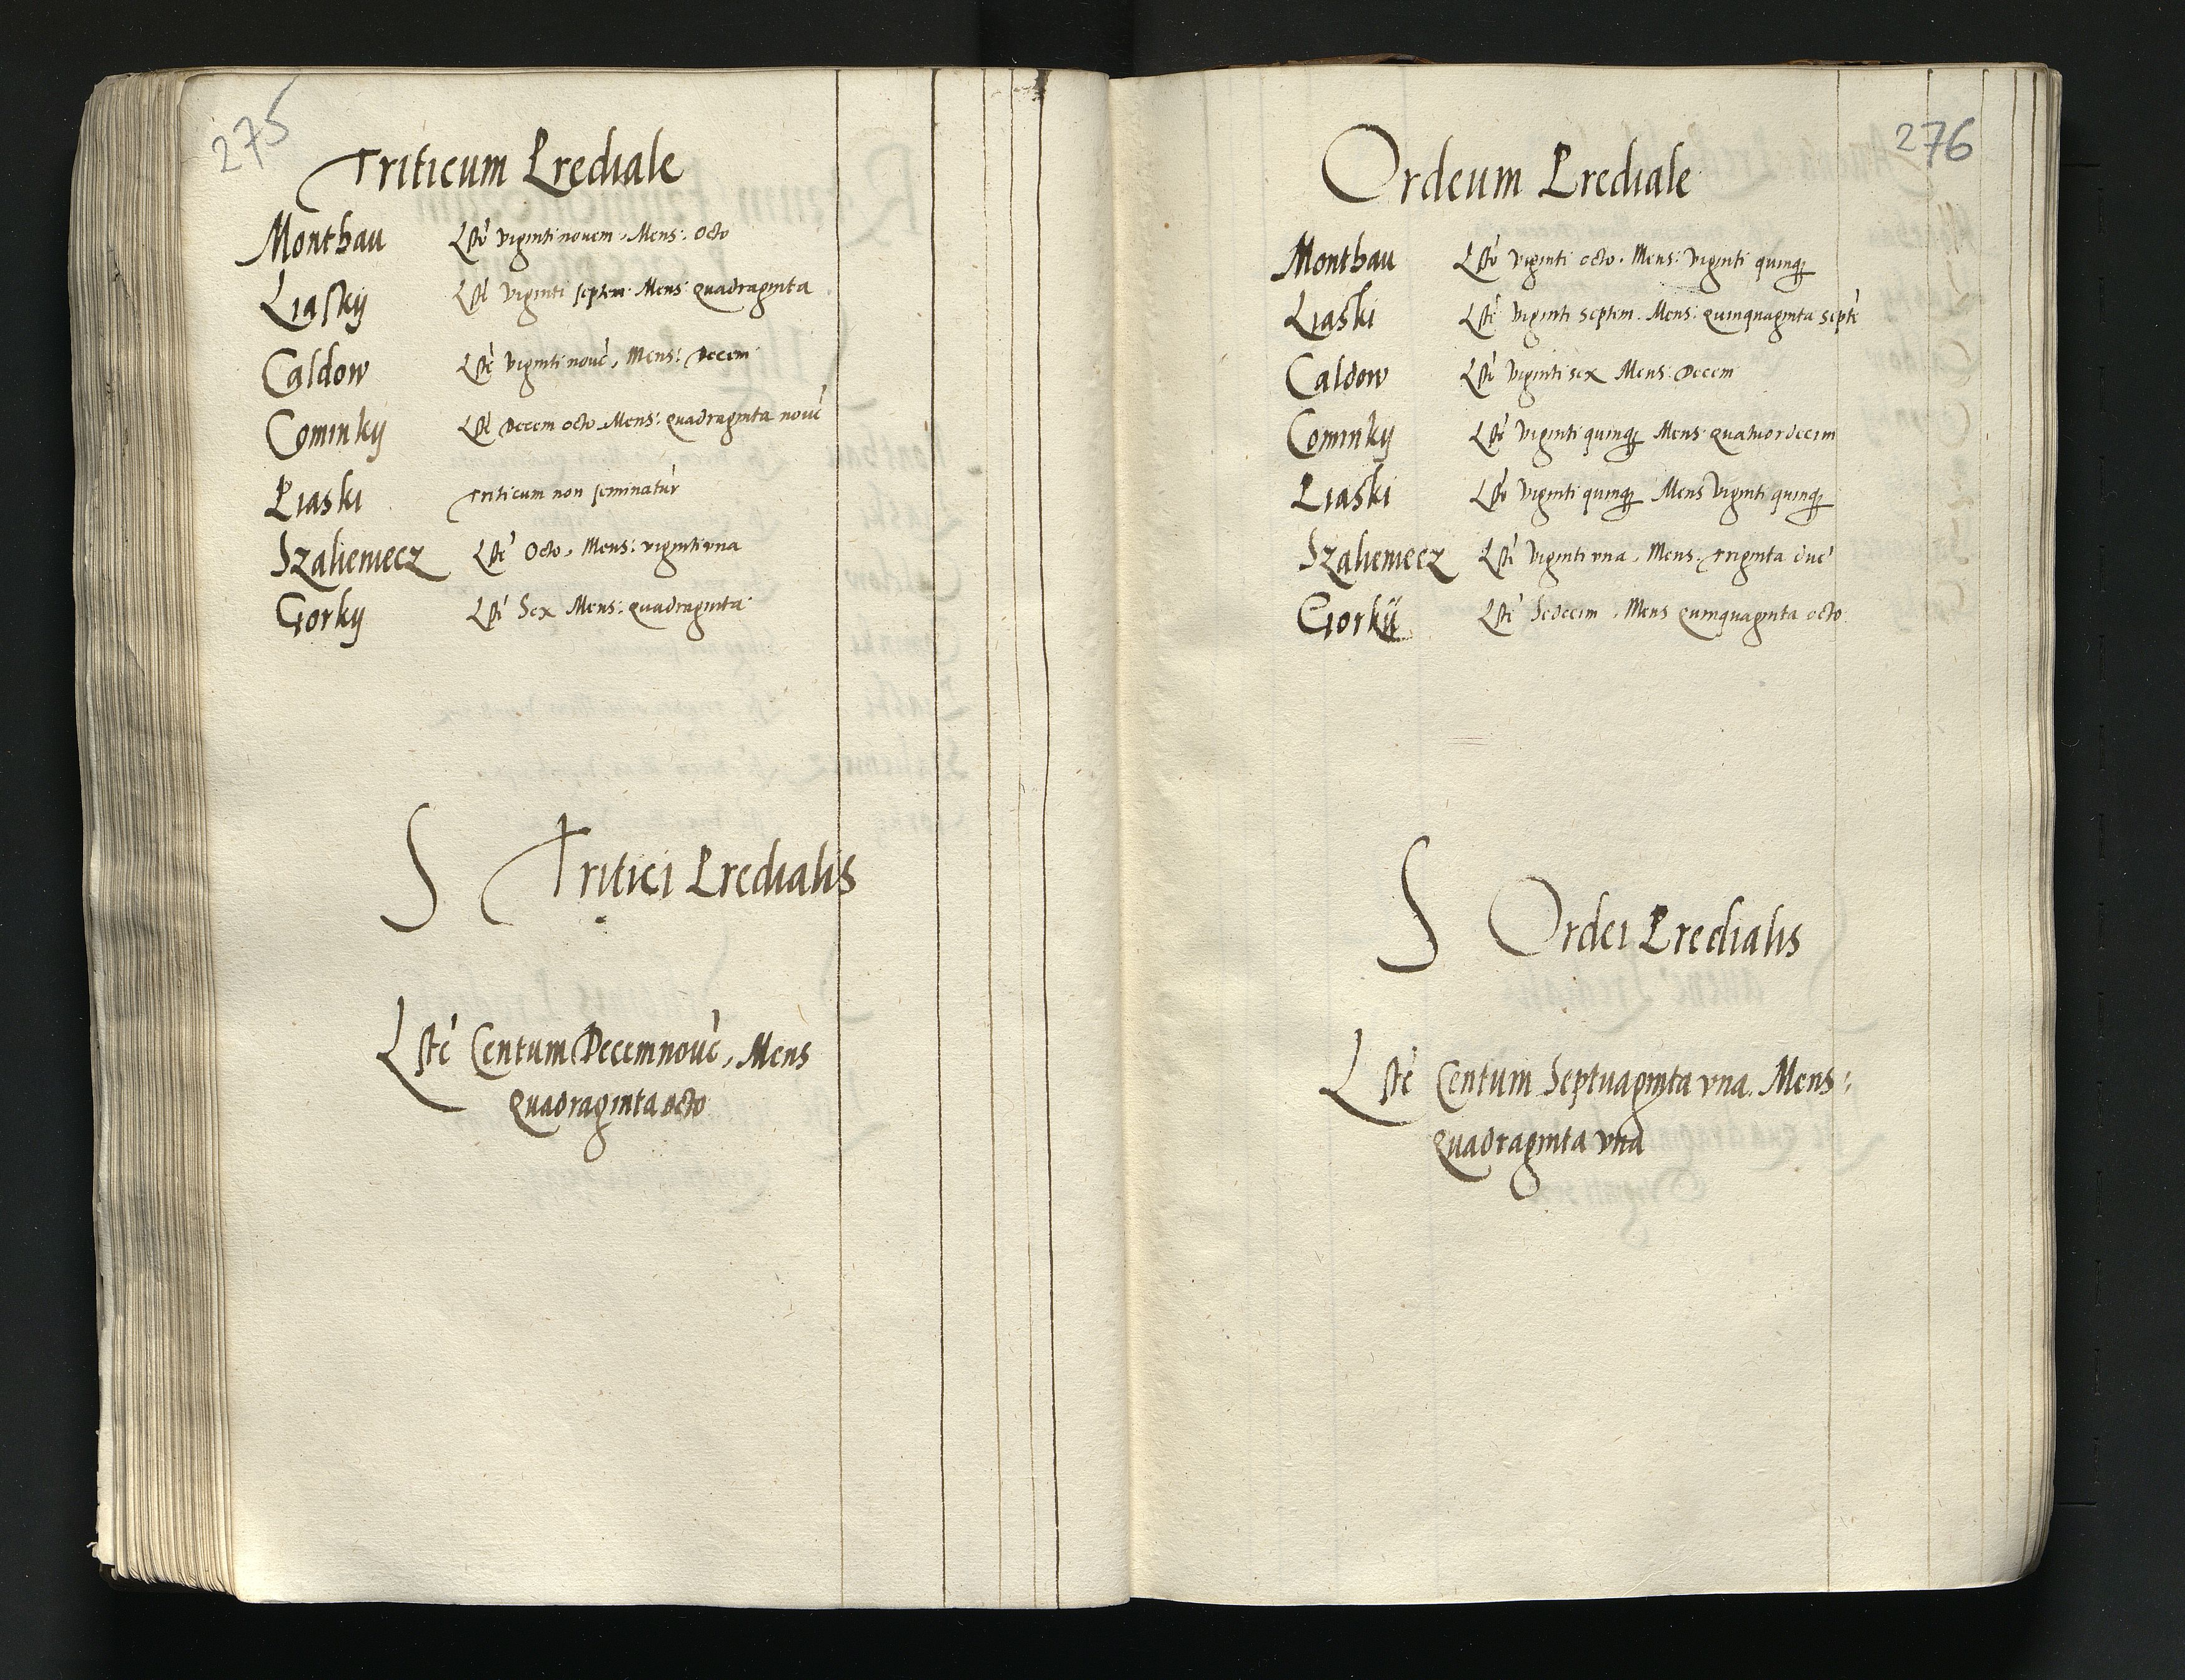 275
Triticum Prediale
Montbau Lste viginti novem, Mens: octo
Liasky Lste viginti septem Mens quadraginta
Caldow Lste viginti nove, Mens: Decem
Cominky Lste Decem octo Mens: quadraginta nove
Piaski Triticum non seminatur
Szaliemecz Lste Octo, Mens: viginti vna
Gorky Lste Sex Mens: quadraginta
S Tritici Predialis
Lste Centum Decemnove, Mens
quadraginta octo
276
Ordeum Prediale
Montbau Lste viginti octo, Mens: viginti quinqꝫ
Liaski Lste viginti septem. Mens: quinquaginta septe
Caldow Lste viginti sex Mens: Decem
Cominky Lste viginti quinqꝫ Mens quatuordecim
Piaski Lste viginti quinqꝫ Mens viginti quinqꝫ
Szaliemecz Lste viginti vna, Mens. triginta due
Gorkÿ Lste Sedecim, Mens quinquaginta octo
S Ordei Predialis
Lste Centum Septuaginta vna. Mens:
quadraginta vna